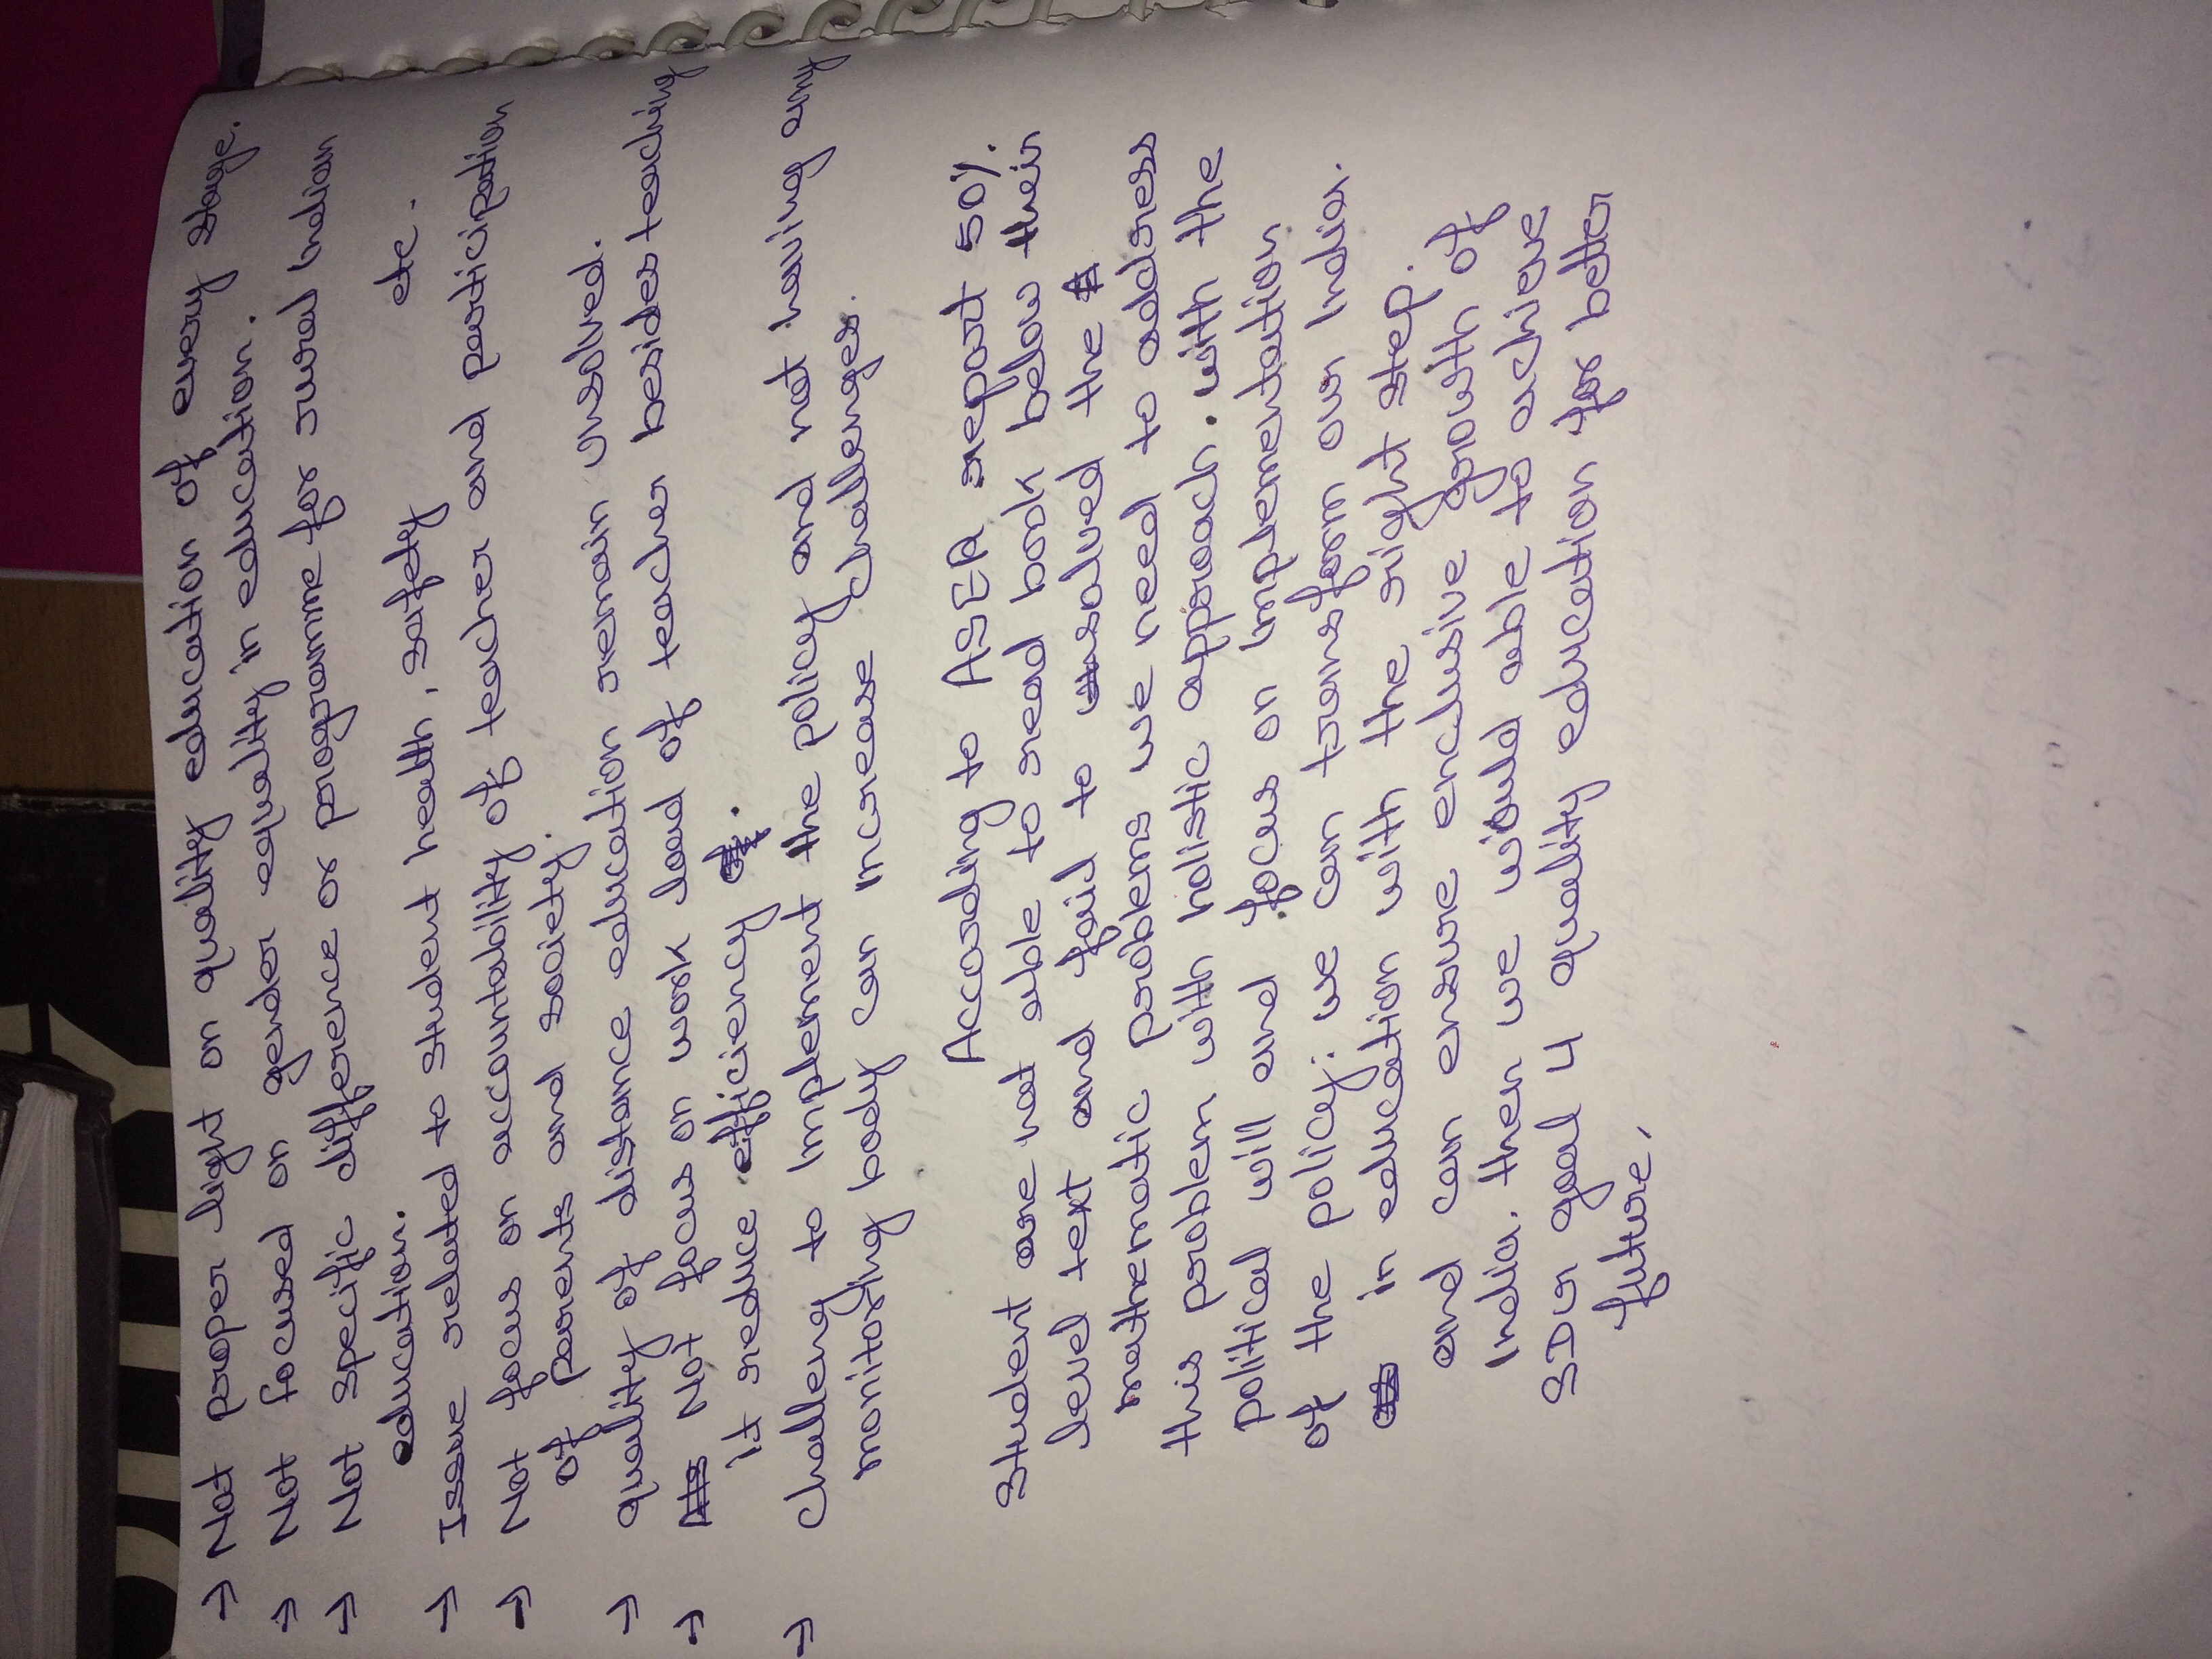 → Not proper light on quality education of every stage.
→ Not focused on gender equality in education.
→ Not specific difference or programme for rural indian
education.
→ Issue related to student health, safety etc.
→ Not focus on accountability of teacher and participation
of parents and society.
→ quality of distance education remain unsolved.
→ Not focus on work load of teacher besides teaching
it reduce efficiency.
→ challeng to implement the policy and not having any
monitoring body can increase challenges.
According to ASER report 50%.
Student are not able to read book below their
level text and fail to solved the
mathematic problems we need to address
this problem with holistic approach. with the
political will and focus on implementation
of the policy. we can transform our India.
in education with the right step.
and can ensure enclusive growth of
India. then we would able to achieve
SDG goal 4 quality education for better
future.